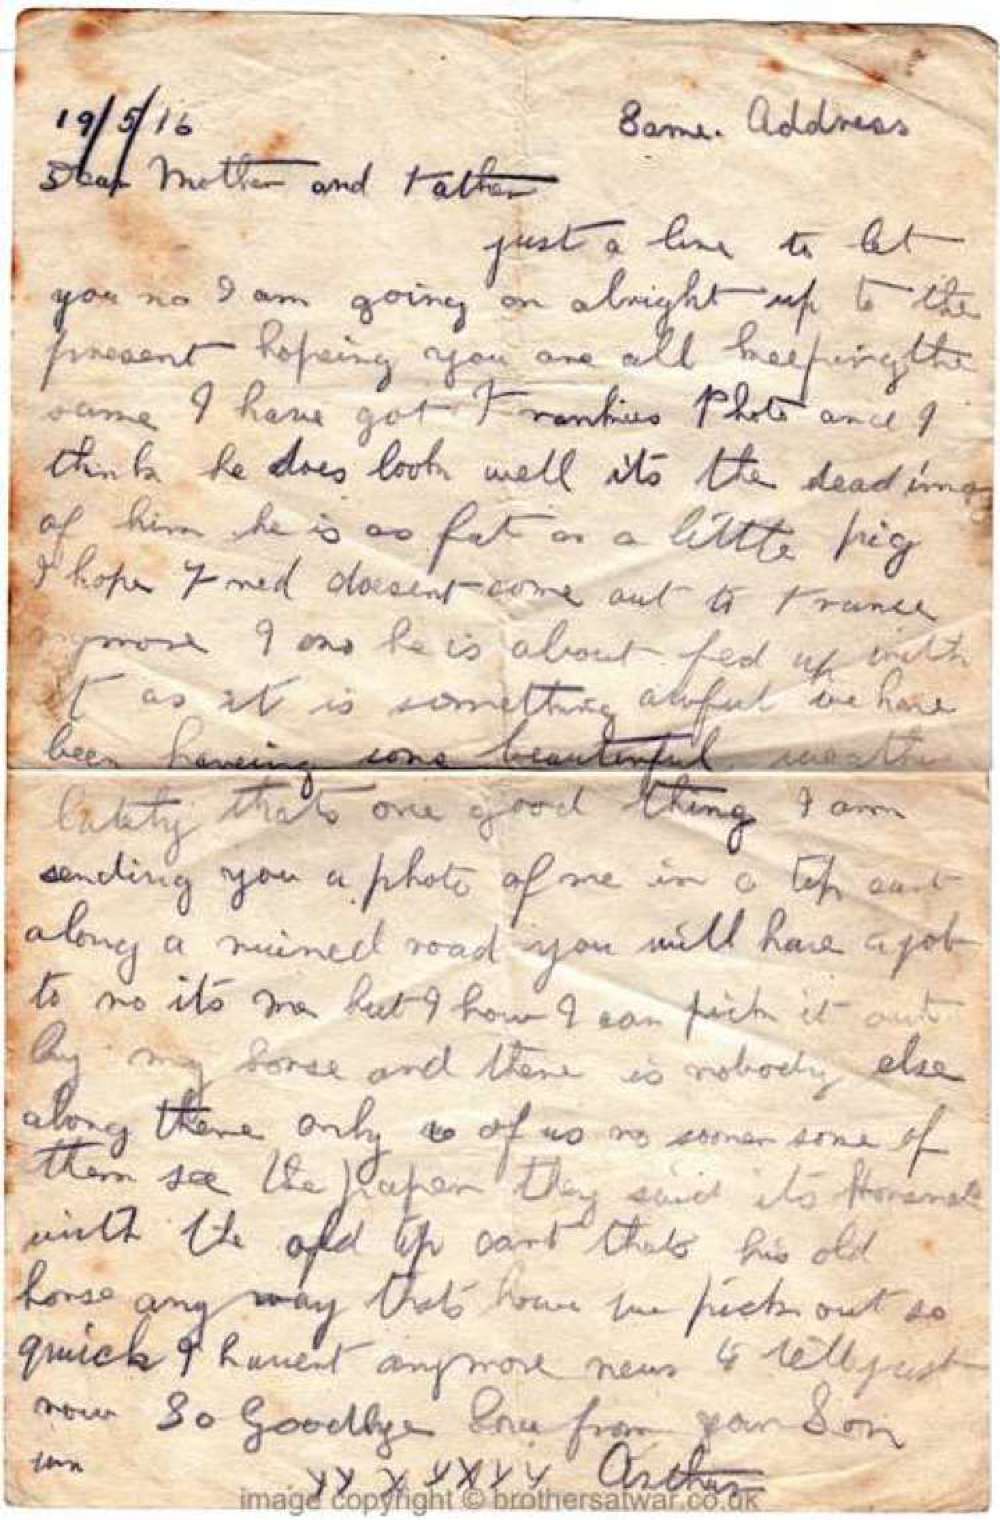 19/5/16 Same. Address
Dear Mother and Father
just a line to let
you no I am going on alright up to the
present hopeing you are all keeping the
same I have got Frankies Photo and I
think he does look well its the dead imag
of him he is as fat as a little pig
I hope Fred doesent come out to France
anymore I no he is about fed up with
it as it is something awful we have
been haveing some beautenful weather
lately thats one good thing I am
sending you a photo of me in a tip cart
along a ruined road you will have a job
to no its me but I know I can pick it out
by my horse and there is nobody else
along there only us of us no sooner some of
them see the paper they said its
with the old tip cart thats his old
horse any way thats how we pick out so
quick I havent anymore news to tell just
now So Goodbye Love from your Son
Arthur
image copyright © brothersatwar.co.uk